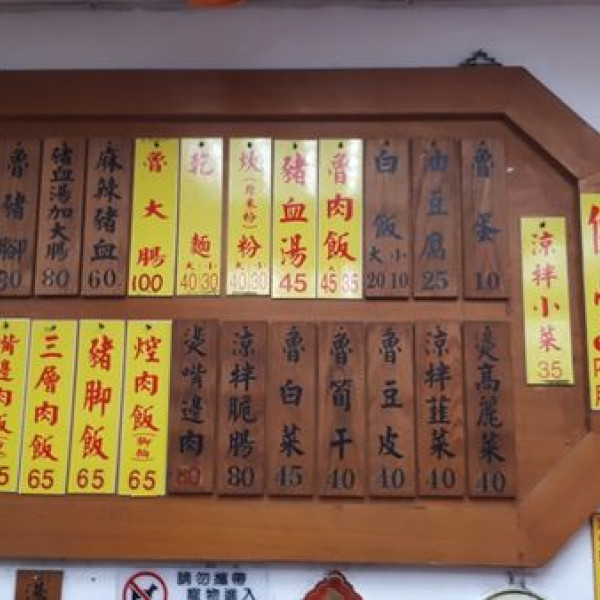 魯豬腳 80
豬血湯加大腸 80
麻辣豬血 60
魯大腸 100
乾麵 大小 40 30
炊(炒米粉)粉 大小 40 30
豬血湯 45
魯肉飯 45 35
白飯 大小 20 10
油豆腐 25
魯蛋 10
涼拌小菜 35
嘴邊肉飯
三層肉飯 65
豬腳飯 65
焢肉飯(腳輪) 65
燙嘴邊肉 80
涼拌脆腸 80
魯白菜 45
魯筍干 40
魯豆皮 40
涼拌韮菜 40
燙高麗菜 40
請勿攜帶
寵物進入